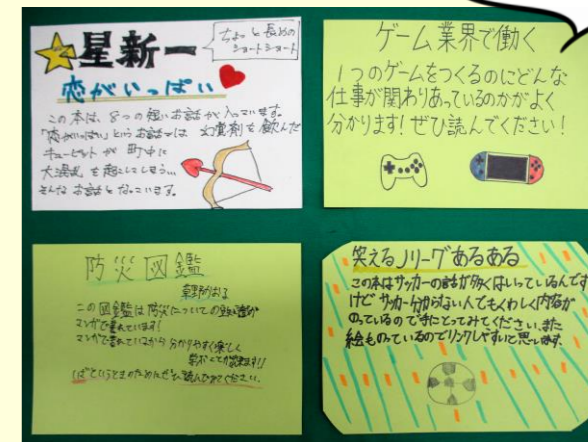 星新一
ちょっと長めの
ショートショート
恋がいっぱい
この本は、8つの短いお話が入っています。
「恋がいっぱい」というお話では 幻覚剤を飲んだ
キューピットが 町中に
大混乱を起こしてしまう…
そんなお話となっています。
ゲーム業界で働く
1つのゲームをつくるのにどんな
仕事が関わりあっているのかがよく
分かります！ぜひ読んでください！
防災図鑑
草野かおる
この図鑑は防災についての
マンガで書かれています！
マンガで書れているから 分かりやすく楽しく
学ぶことが出来ます!!
ぜひ読んでみてください。
笑えるJリーグあるある
この本はサッカーの話が多くはいっているんです
けど サッカー分からない人でもくわしく内容が
のっているので手にとってみてください。また
絵ものっているのでリンクしやすいと思います。